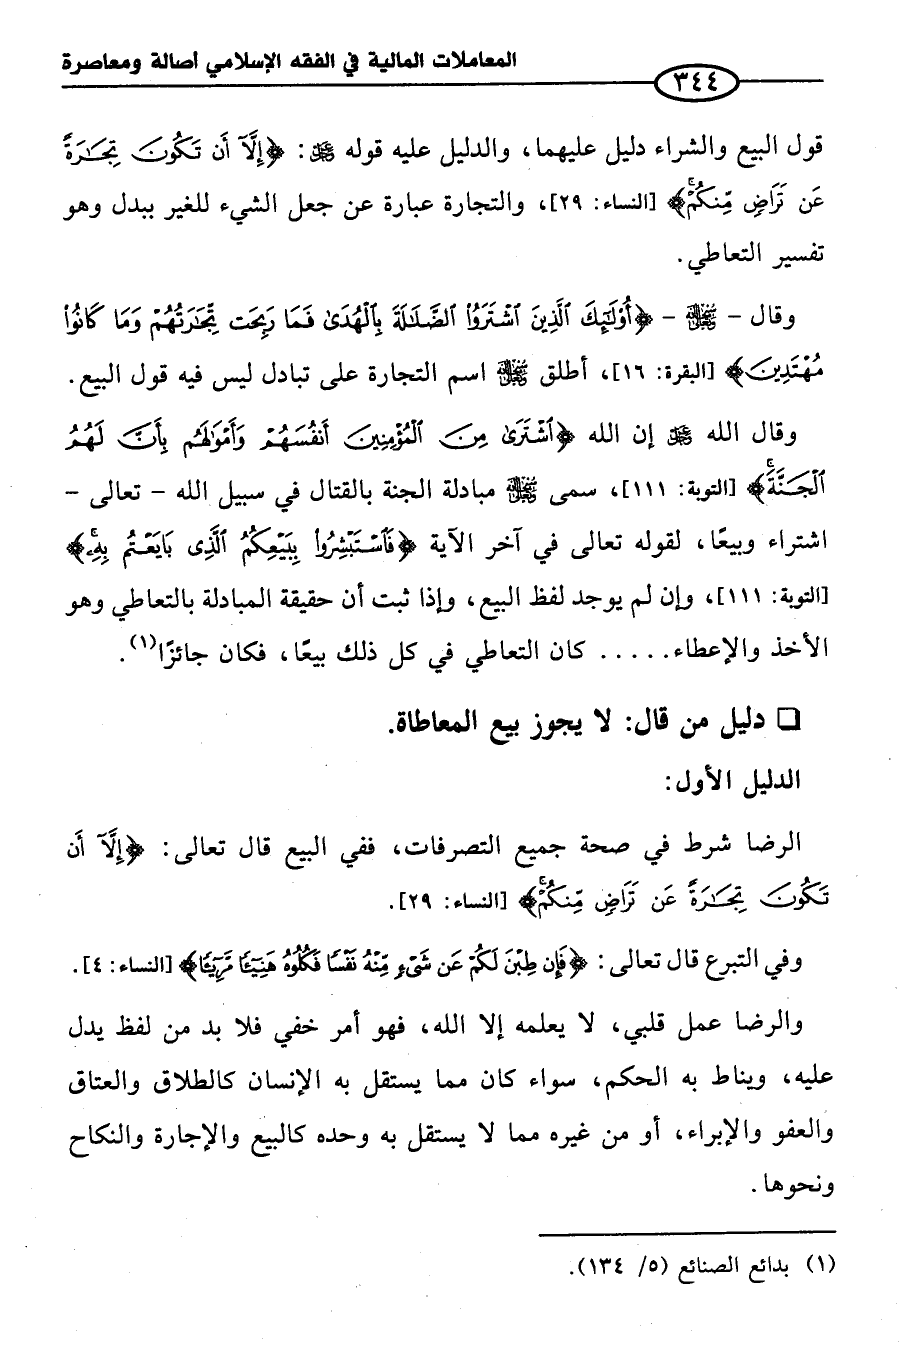 المعاملات المالية في الفقه الإسلامي أصالة ومعاصرة
٣٤٤
قول البيع والشراء دليل عليهما، والدليل عليه قوله ﷻ: ﴿إِلَّآ أَن تَكُونَ تِجَٰرَةً
عَن تَرَاضٍ مِّنكُمْۚ﴾ [النساء: ٢٩]، والتجارة عبارة عن جعل الشيء للغير ببدل وهو
تفسير التعاطي.
وقال - ﷾ - ﴿أُوْلَٰٓئِكَ ٱلَّذِينَ ٱشْتَرَوُاْ ٱلضَّلَٰلَةَ بِٱلْهُدَىٰ فَمَا رَبِحَت تِّجَٰرَتُهُمْ وَمَا كَانُواْ
مُهْتَدِينَ﴾ [البقرة: ١٦]، أطلق ﷾ اسم التجارة على تبادل ليس فيه قول البيع.
وقال الله ﷻ إن الله ﴿ٱشْتَرَىٰ مِنَ ٱلْمُؤْمِنِينَ أَنفُسَهُمْ وَأَمْوَٰلَهُم بِأَنَّ لَهُمُ
ٱلْجَنَّةَۚ﴾ [التوبة: ١١١]، سمى ﷾ مبادلة الجنة بالقتال في سبيل الله - تعالى -
اشتراء وبيعًا، لقوله تعالى في آخر الآية ﴿فَٱسْتَبْشِرُواْ بِبَيْعِكُمُ ٱلَّذِى بَايَعْتُم بِهِۦۚ﴾
[التوبة: ١١١]، وإن لم يوجد لفظ البيع، وإذا ثبت أن حقيقة المبادلة بالتعاطي وهو
الأخذ والإعطاء..... كان التعاطي في كل ذلك بيعًا، فكان جائزًا(١).
❏ دليل من قال: لا يجوز بيع المعاطاة.
الدليل الأول:
الرضا شرط في صحة جميع التصرفات، ففي البيع قال تعالى: ﴿إِلَّآ أَن
تَكُونَ تِجَٰرَةً عَن تَرَاضٍ مِّنكُمْۚ﴾ [النساء: ٢٩].
وفي التبرع قال تعالى: ﴿فَإِن طِبْنَ لَكُمْ عَن شَىْءٍ مِّنْهُ نَفْسًا فَكُلُوهُ هَنِيٓـًٔا مَّرِيٓـًٔا﴾ [النساء: ٤].
والرضا عمل قلبي، لا يعلمه إلا الله، فهو أمر خفي فلا بد من لفظ يدل
عليه، ويناط به الحكم، سواء كان مما يستقل به الإنسان كالطلاق والعتاق
والعفو والإبراء، أو من غيره مما لا يستقل به وحده كالبيع والإجارة والنكاح
ونحوها.
(١) بدائع الصنائع (٥/ ١٣٤).